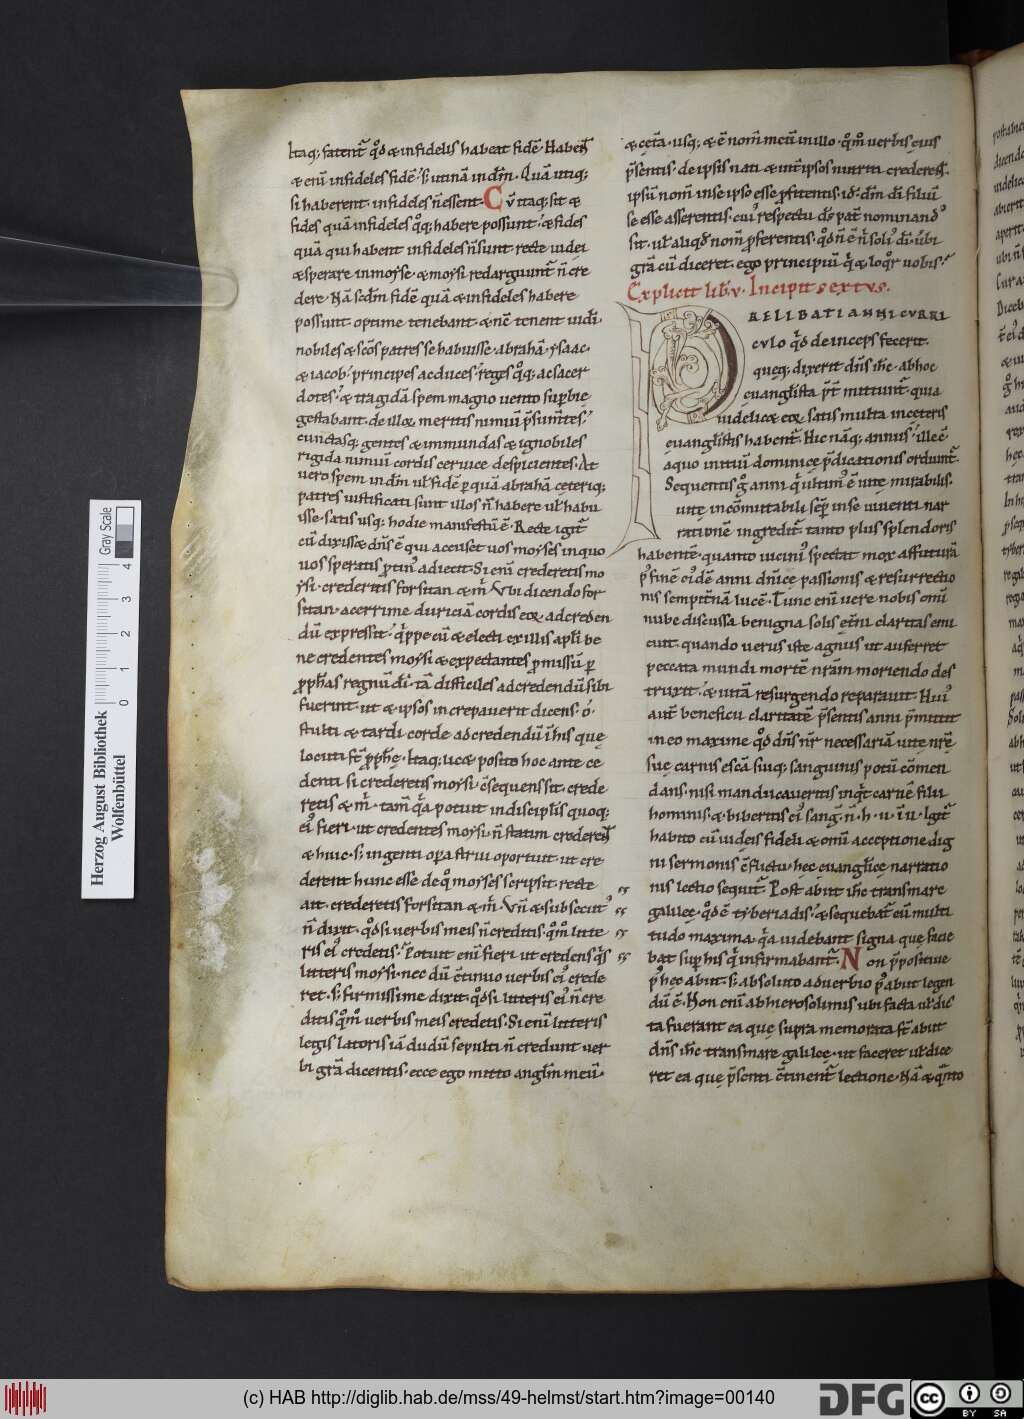 Itaq; fatent̄ qd̄ & infidelis habeat fidē. Habent
& enī infideles fidē. s; utinā in dn̄m. Quā utiq;
si haberent. infideles n̄ essent. Cū itaq; sit &
fides quā infideles qq; habere possunt. & fides
quā qui habent infideles n̄ sunt. recte uidei
& sperare in moyse. & moysi redarguunt̄ n̄ cre
dere. Nā scdm̄ fidē quā & infideles habere
possunt. optime tenebant. & nc̄ tenent iudi
nobiles & sc̄os patres se habuisse. abrahā. ysaac.
& iacob. principes ac duces. reges qq; ac sacer
dotes. & tragidā spem magno uento supbie
gestabant. de illoꝝ meritis nimiū p̄sumtes.
cunctasq; gentes & immundas & ignobiles
rigida nimiū cordis ceruice despicientes. At
uero spem in dn̄m ut fidē p quā abrahā ceteriq;
patres iustificati sunt illos n̄ habere ut habu
isse. satis usq; hodie manifestū ē. Recte igit̄
cū dixiss& dn̄s ē qui accuset uos moyses in quo
uos speratis. ptin' adiecit. Si enī crederetis mo
ysi. crederitis forsitan & m̄. Ubi dicendo for
sitan. acerrime duriciā cordis eoꝝ ad creden
dū expressit. q̄ppe cū & electi ex illis apl̄i be
ne credentes moysi & expectantes pmissū p
pph̄as regnū di. tā difficiles ad credendū sibi
fuerint. ut & ipsos increpauerit dicens. o
stulti & tardi corde ad credendū in his que
locuti st̄ pph̄e. Itaq; lic& posito hoc ante ce
denti si crederetis moysi. c̄sequens sit. crede
retis & m̄. tam̄ q̄a potuit in disciplis quoq;
ei' fieri. ut credentes moysi. n̄ statim crederent
& huic. s; ingenti opa strui oportuit. ut cre
derent hunc esse de q° moyses scripsit. recte
ait. crederetis forsitan & m̄. Vn̄ & subsecut'
n̄ dixit. qd̄ si uerbis meis n̄ creditis. qm° litte
ris ei' credetis. Potuit enī fieri. ut credens qs
litteris moysi. nec dū c̄tinuo uerbis ei' crede
ret. s; firmissime dixit. qd̄ si litteris ei' n̄ cre
ditis. qm° uerbis meis credetis. Si enī litteris
legis latoris iā dudū sepulti n̄ credunt. uer
bi grā dicentis. ecce ego mitto anglm̄ meū.
& ceta. usq; & ē nom̄ meū in illo. qm° uerbis eius
p̄sentis. de ipsis nati & int̄ ipsos nutriti crederent.
ipsū nom̄ in se ipso esse pfitentis. id. dm̄. di filiū
se esse asserentis. cui' respectu ds̄ pat̄ nominand'
sit. ut aliqd̄ nom̄ pferentis. qd̄ n̄ ē n̄ soli' di. ubi
grā cū diceret. ego principiū q̄ & loqr̄ uobis.
Explicit lib. v. Incipit sextus.
PRELIBATI ANNI CURRI
culo qd̄ deinceps fecerit.
queq; dixerit dn̄s ih̄c. ab hoc
euangl̄ista p̄t mittunt̄. quia
uidelic& eoꝝ satis multa in ceteris
euangl̄istis habent̄. Hic nāq; annus. ille ē
a quo initiū dominice p̄dicationis ordiunt̄.
Sequentis g° anni q̄ ultim' ē uite mirabilis.
uite incōmutabili semp in se uiuenti nar
rationē ingredit̄. tanto plus splendoris
habentē. quanto uicini' spectat mox affuturā
p' finē ei'dē anni dn̄ice passionis & resurrectio
nis sempit̄nā lucē. Tunc enī uere nobis omi
nube discussa benigna solis et̄ni claritas emi
cuit. quando uerus iste agnus ut auferret
peccata mundi mortē nr̄am moriendo des
truxit. & uitā resurgendo reparauit. Hui'
aut̄ beneficii claritatē p̄sentis anni p̄mittit
in eo maxime qd̄ dn̄s nr̄ necessariā uite nr̄e
sue carnis escā siuq; sanguinis potū cōmen
dans. nisi manducaueritis inqt̄ carnē filii
hominis. & biberitis ei' sang. n̄. h. u. i u. Igit̄
habito cū iudeis fideli & omi acceptione dig
ni sermonis c̄flictu. hec euangl̄ice narratio
nis lectio sequit̄. Post abiit ih̄c trans mare
galilee. qd̄ ē tyberiadis. & sequebat̄ eū multi
tudo maxima. q̄a uidebant signa que facie
bat sup his q̄ infirmabant̄. Non p̄positiue
p' hec abiit. s; absoluto aduerbio p' abiit legen
dū ē. Non enī ab hierosolimis ubi facta ut dic
ta fuerant ea que supra memorata st̄ abiit
dn̄s ih̄c trans mare galilee. ut faceret ut dice
ret ea que p̄senti c̄tinent̄ lectione. Nā & qnto
Gray Scale
0 1 2 3 4
Herzog August Bibliothek
Wolfenbüttel
(c) HAB http://diglib.hab.de/mss/49-helmst/start.htm?image=00140
DFG
cc
BY SA